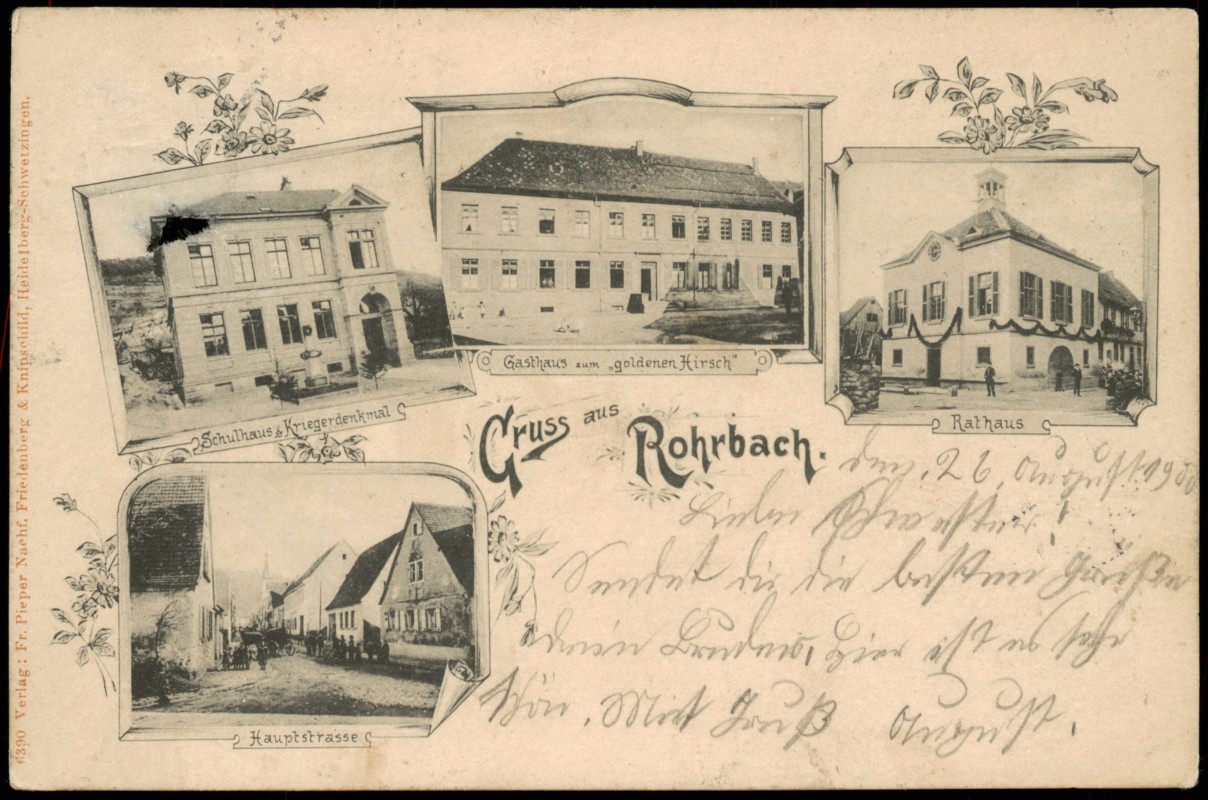 Gasthaus zum „goldenen Hirsch“
Schulhaus & Kriegerdenkmal
Rathaus
Gruss aus Rohrbach.
Hauptstrasse
den, 26. August 1900
Liebe Schwester!
Sendet dir die besten Grüße
dein Bruder, hier ist es sehr
schön. Mit Gruß August.
6390 Verlag: Fr. Pieper Nachf. Friedenberg & Knipschild, Heidelberg-Schwetzingen.